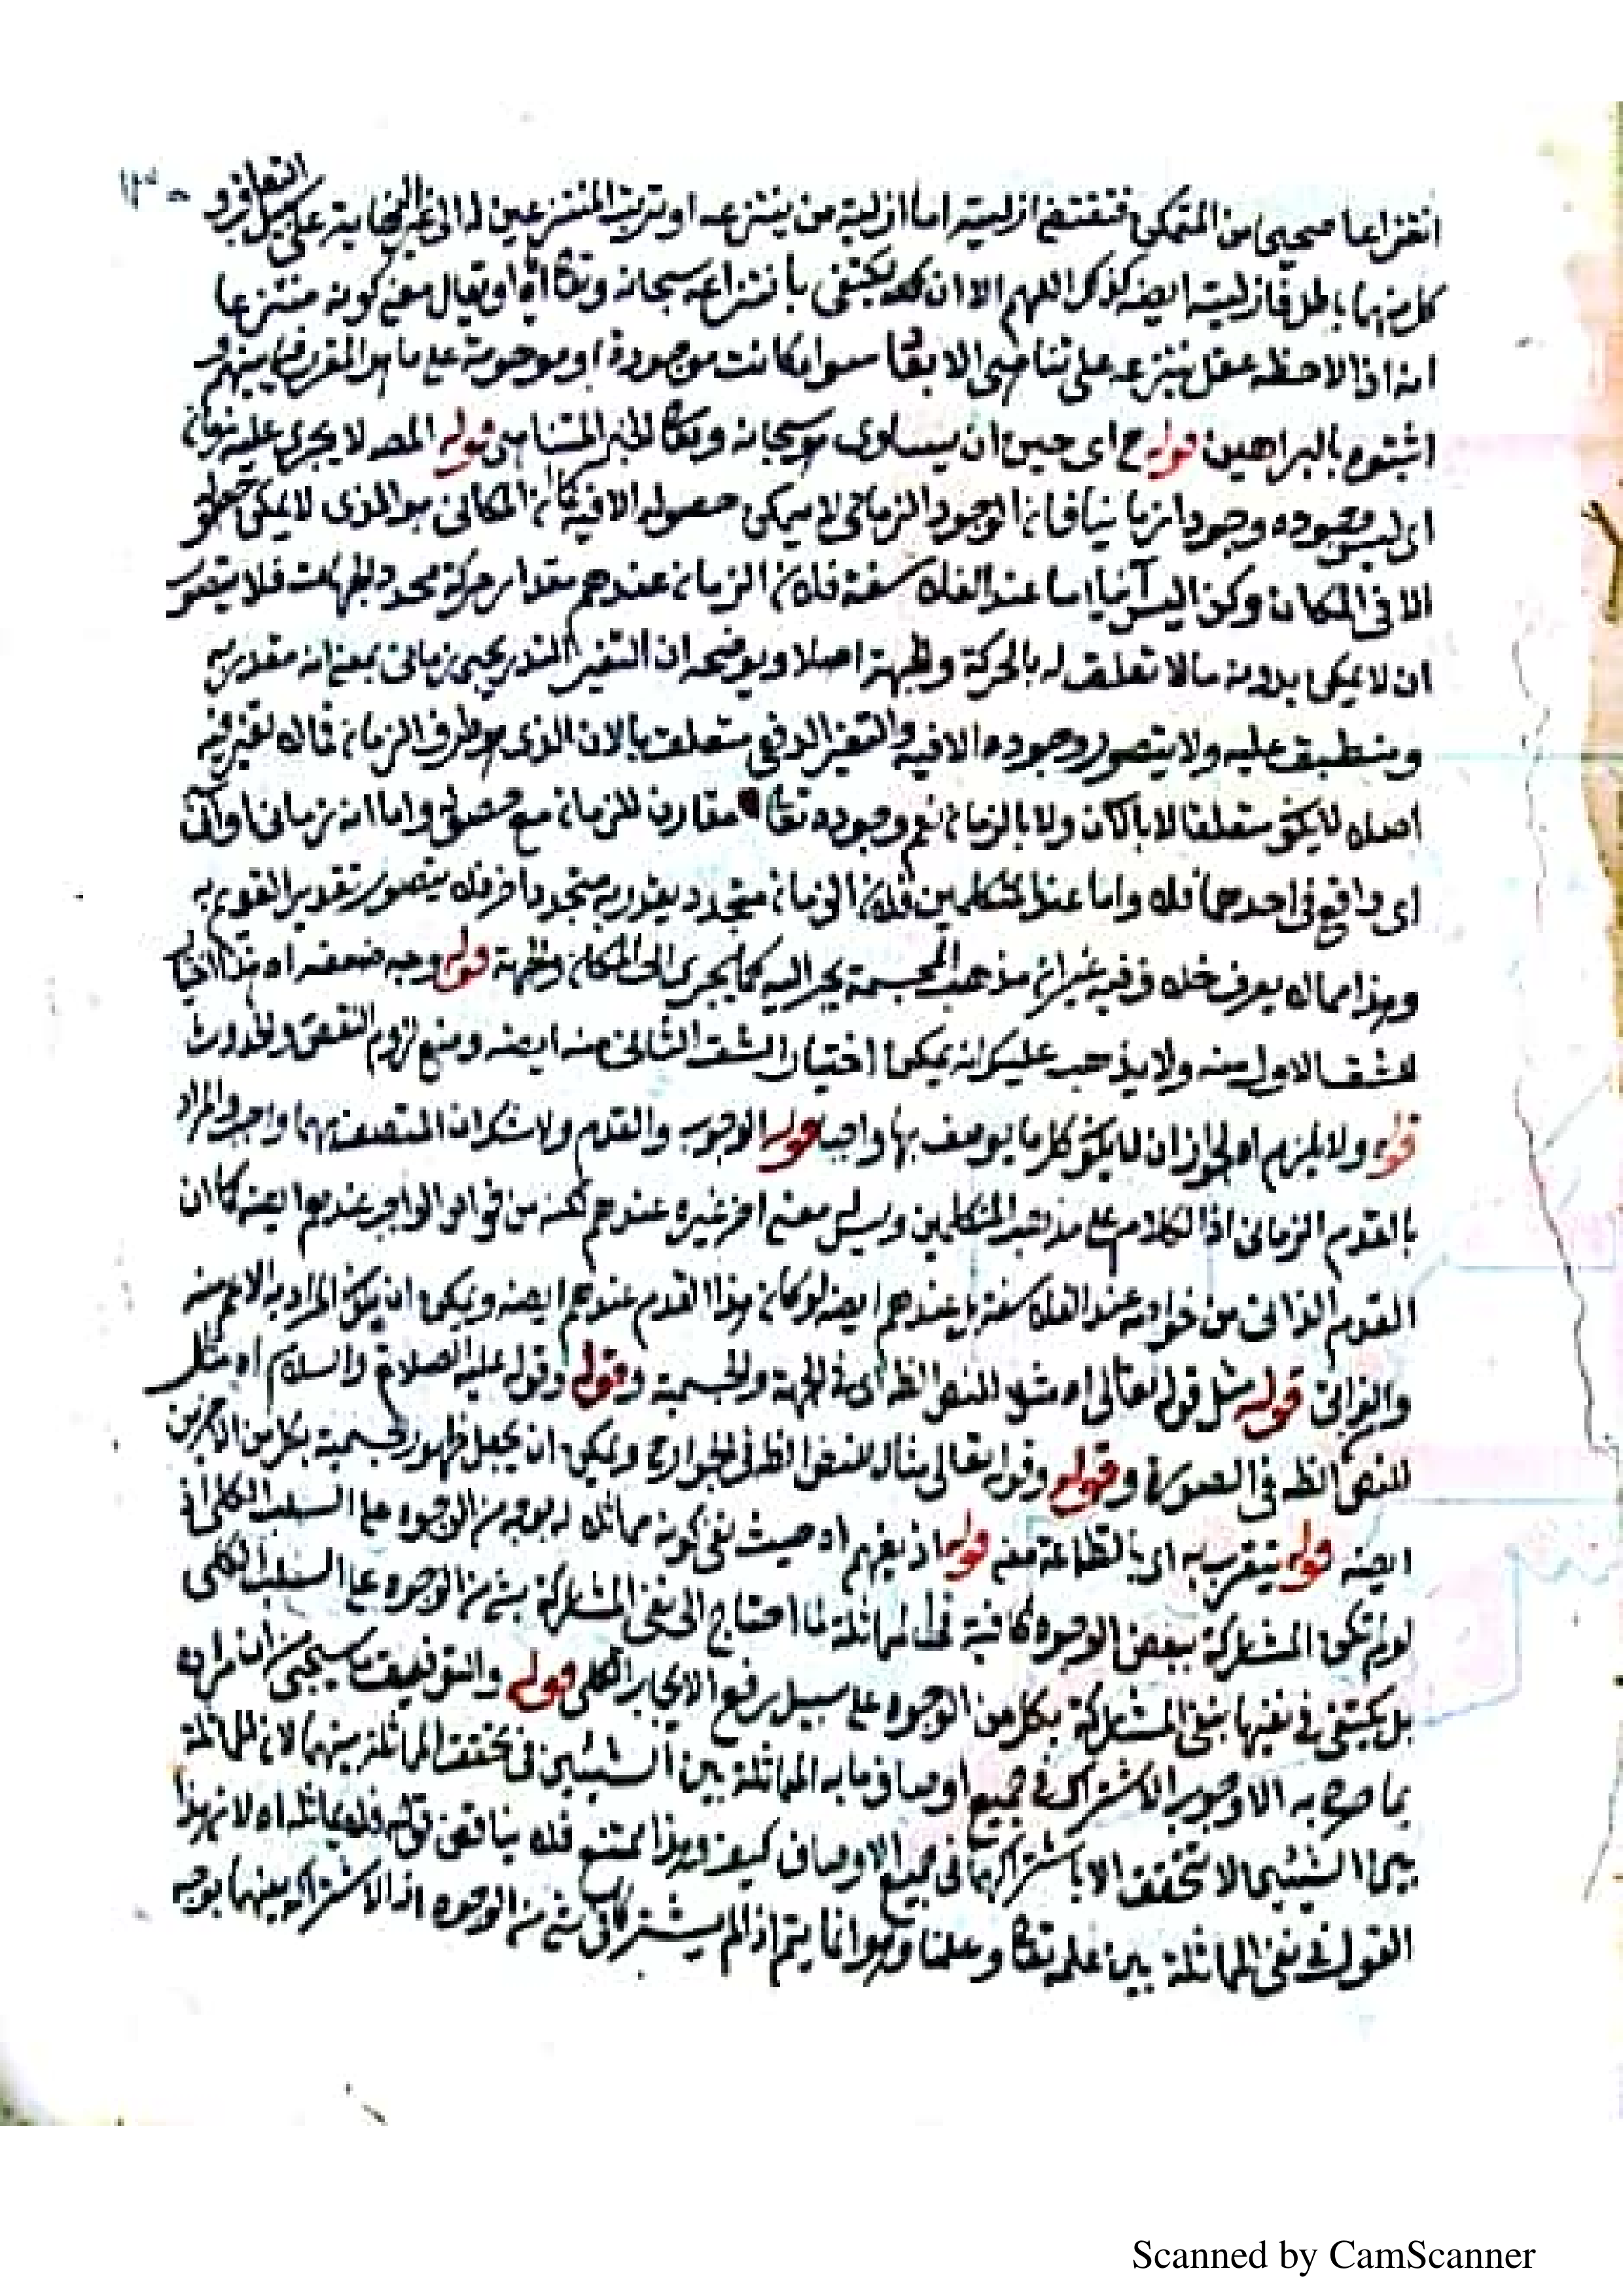 انتزاعا صحيحا من المتمكن فتقتضى ازليته اما ازلية من ينتزعه او ترتب المنتزعين له الى غير النهاية على سبيل التعاقب و
كل منهما باطل فازليته ايضه كذلك اللهم الا ان يكتفى بانتزاعه سبحانه وتعا او يقال معنى كونه منتزعا
انه اذا لاحظه عقل ينتزعه على تناهى الابعاد سواء كانت موجودة او موهومة على ما هو المقرر فيما بينهم و
اثبتوه بالبراهين قوله ح اى حين ان يساوى هو سبحانه وتعا الحيز المتناهى قوله المص لا يجرى عليه زمان
اى ليس وجوده وجودا زمانيا فان الوجود الزمانى لا يمكن حصوله الا فيه كما ان المكانى هو الذى لا يمكن حصوله
الا فى المكان وكذا ليس آنيا اما عند الفلاسفة فلان الزمان عندهم مقدار حركة محدد الجهات فلا يتصور
ان لا يمكن بدونه ما لا تعلق له بالحركة والجهة اصلا ويوضحه ان التغير التدريجى زمانى بمعنى انه مقدر به
ومنطبق عليه ولا يتصور وجوده الا فيه والتغير الدفعى متعلق بالان الذى هو طرف الزمان فما لا تغير فيه
اصلا لا يكون متعلقا لا بالآن ولا بالزمان نعم وجوده تعا مقارن للزمان مع حصوله واما انه زمانى او آنى
اى واقع فى احدهما فلا واما عند المتكلمين فلان الزمان متجدد يقدر به متجدد اخر فلا يتصور تقدير القديم به
وهذا مما لا يعرف خلاف فيه غير ان مذهب المجسمة يجر اليه كما يجرى الى المكان والجهة قوله وجه ضعفه اه هذا اختيار
للشق الاول منه ولا يذهب عليك انه يمكن اختيار الشق الثانى منه ايضه ومنع لزوم النقص والحدوث
قوله ولا يلزم اه لجواز ان لا يكون كل ما يوصف بها واجبا قوله الوجوب والقدم ولا شك ان المتصف بهما واجب والمراد
بالقدم الزمانى اذ الكلام على مذهب المتكلمين وليس معنى اخر غيره عندهم لكنه من خواص الواجب عندهم ايضه كما ان
القدم الذاتى من خواصه عند الفلاسفة بل عندهم ايضه لو كان هذا القدم عندهم ايضه ويمكن ان يكون المراد به الاعم منه
والذاتى قوله مثل قوله تعالى اه مثال للنص الظاهر فى الجهة والجسمية وقوله وقوله عليه الصلاة والسلام اه مثال
للنص الظ فى الصورة وقوله وقوله تعالى مثال للنص الظ فى الجوارح ويمكن ان يجعل ظهور الجسمية بكل من الاخيرين
ايضه قوله يتقرب به اى بالطاعة معنى قوله اذ يفهم اه حيث نفى كونه مماثلا له بوجه من الوجوه على السلب الكلى اذ
لو لم تكن المشاركة ببعض الوجوه كافية فى المماثلة لما احتاج الى نفى المشاركة بشئ من الوجوه على السلب الكلى
بل يكتفى فى نفيها بنفى المشاركة بكل من الوجوه على سبيل رفع الايجاب الكلى قوله والتوفيق ما سيجئ من ان مراده
بما صرح به الا وجوب الاشتراك فى جميع اوصاف ما به المماثلة بين الشيئين فى تحقق المماثلة بينهما لا ان المماثلة
بين الشيئين لا تتحقق الا باشتراكهما فى جميع الاوصاف كيف وهذا ممتنع فلا يناقض قوله فلا يماثل اه لان هذا
القول فى نفى المماثلة بين علمه تعا وعلمنا وهو انما يتم اذا لم يشتركا فى شئ من الوجوه اذ الاشتراك بينهما بوجه
Scanned by CamScanner